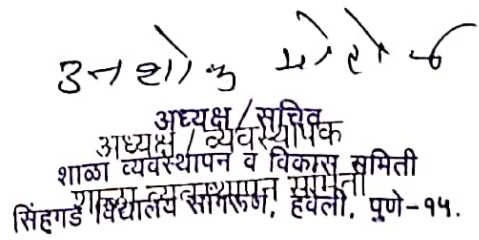 अशोक मोहोळ
अध्यक्ष / सचिव
अध्यक्ष / व्यवस्थापक
शाळा व्यवस्थापन व विकास समिती
शाळा व्यवस्थापन समिती
सिंहगड विद्यालय सांगरूण, हवेली, पुणे-१५.